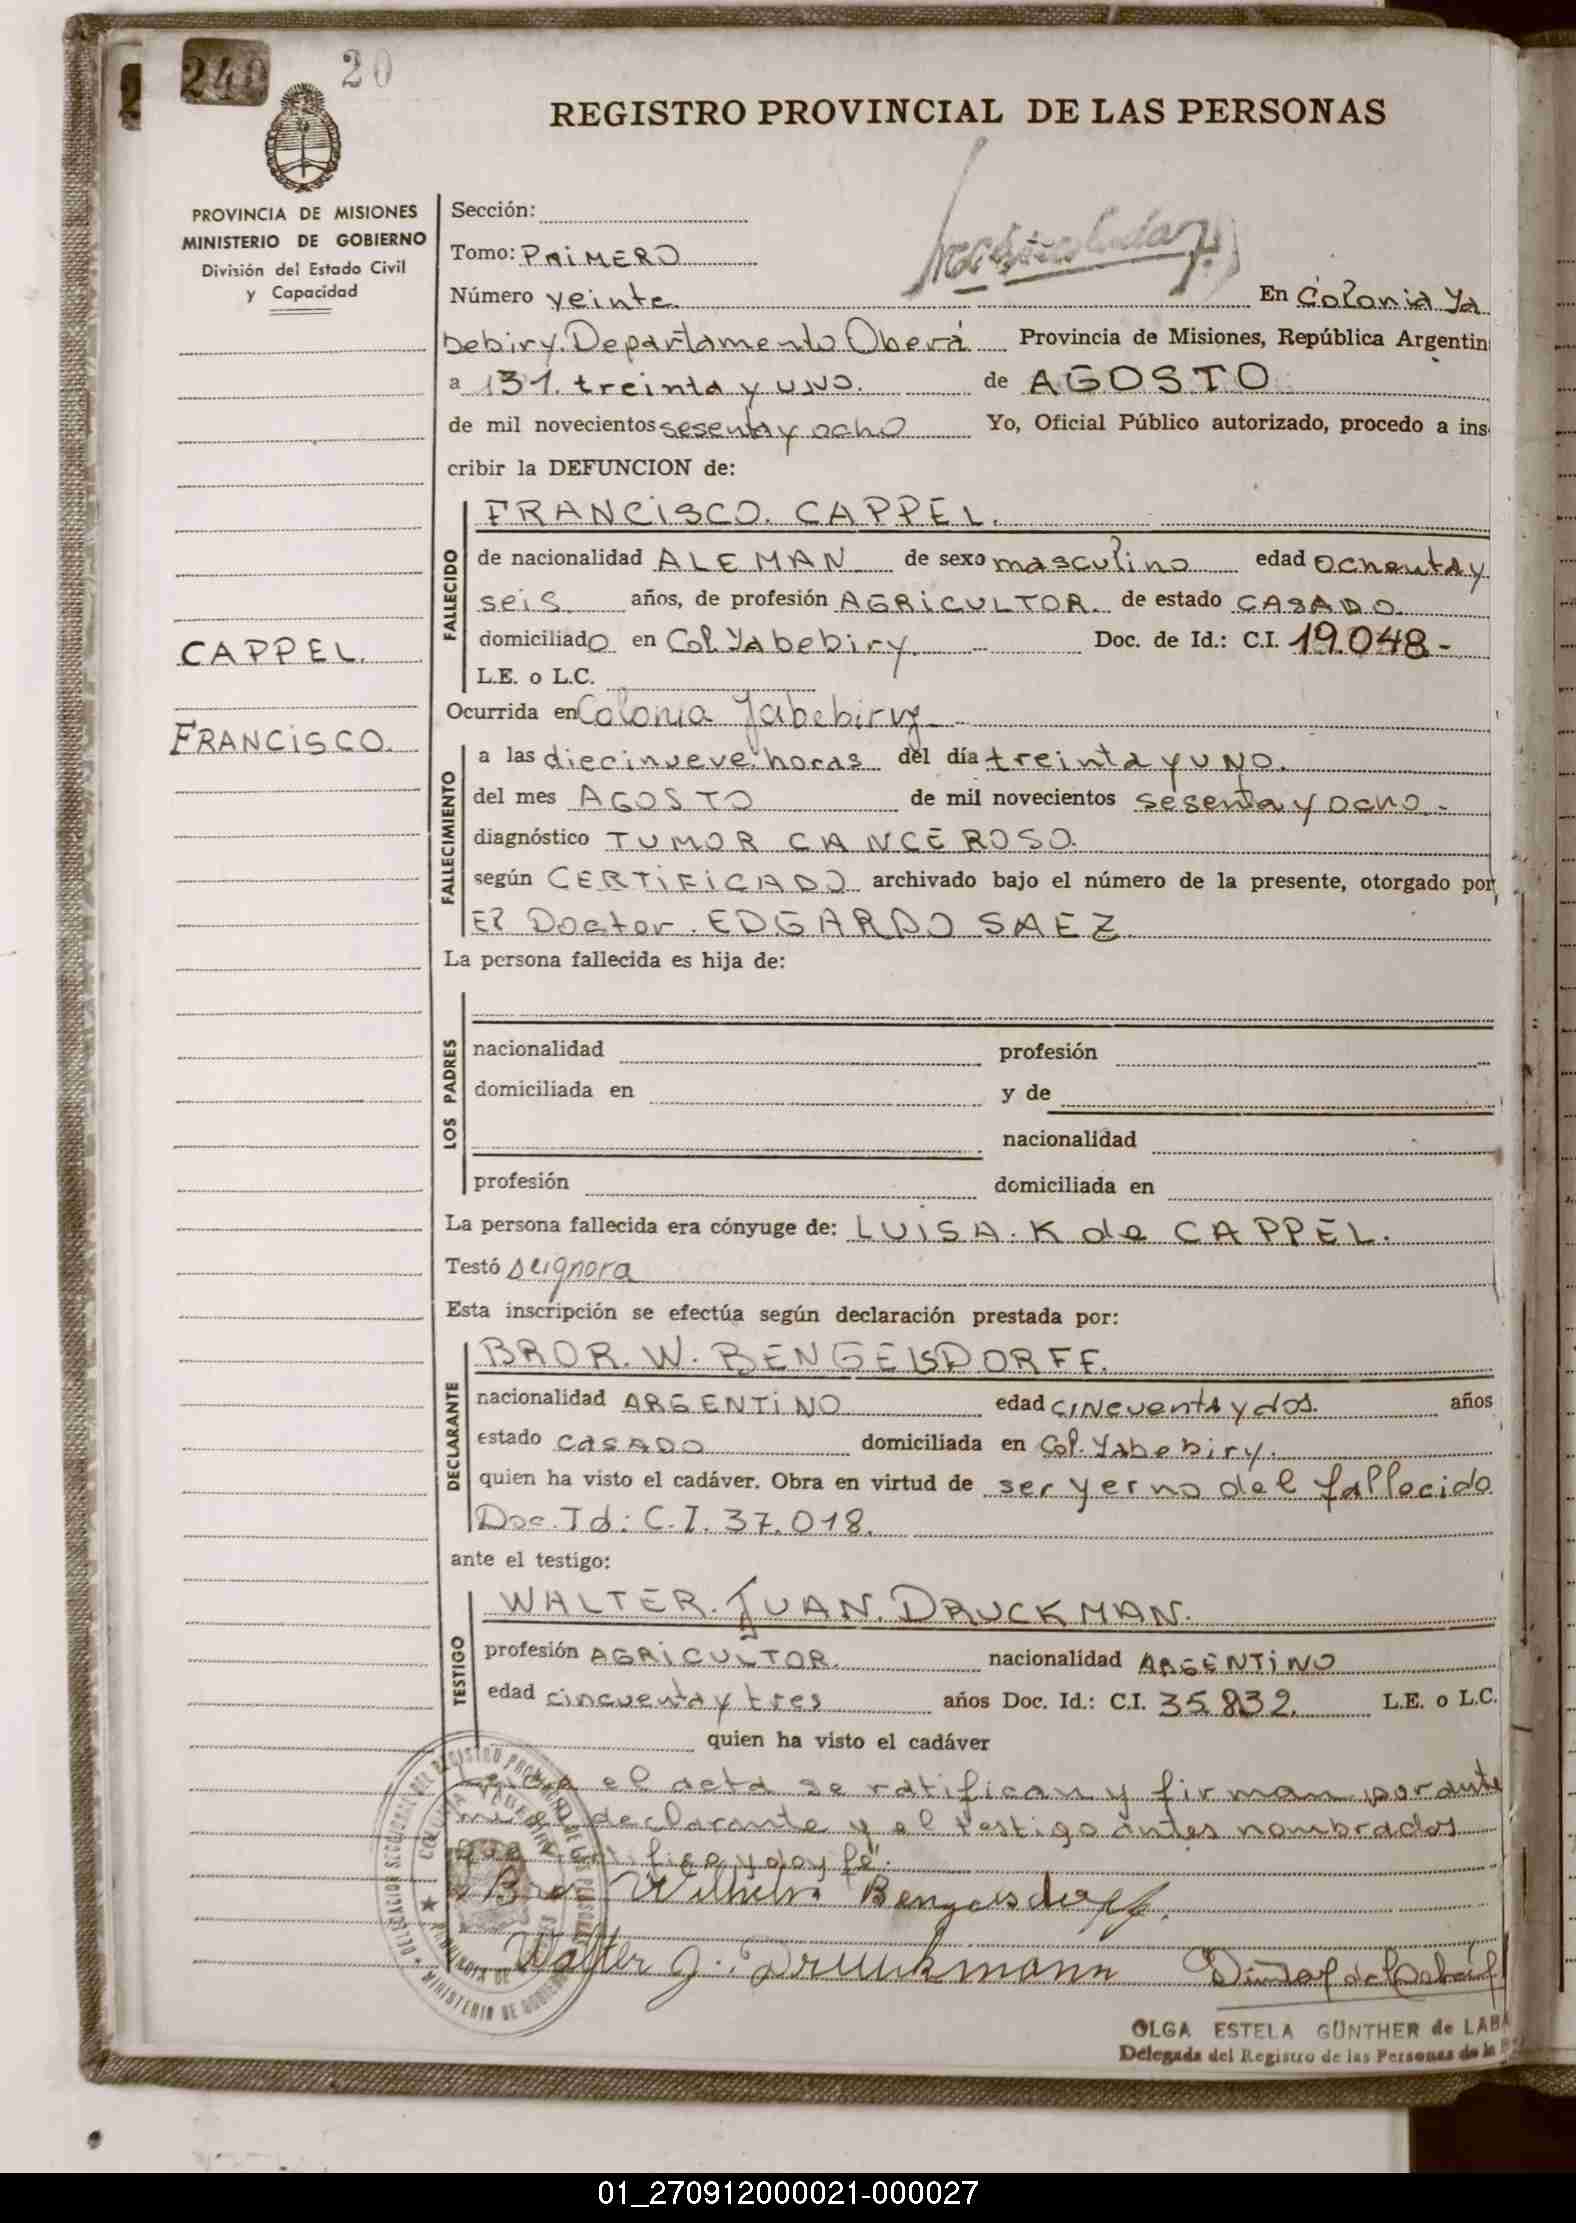 240 20
REGISTRO PROVINCIAL DE LAS PERSONAS
PROVINCIA DE MISIONES
MINISTERIO DE GOBIERNO
División del Estado Civil
y Capacidad
Sección:
Tomo: PRIMERO
Número veinte. En Colonia Ya
bebiry. Departamento Oberá Provincia de Misiones, República Argentin
a 31. treinta y UNO. de AGOSTO
de mil novecientos sesenta y ocho Yo, Oficial Público autorizado, procedo a ins
cribir la DEFUNCION de:
CAPPEL.
FRANCISCO.
FALLECIDO
FRANCISCO. CAPPEL.
de nacionalidad ALEMAN de sexo masculino edad ochenta y
seis. años, de profesión AGRICULTOR. de estado CASADO.
domiciliado en Col Yabebiry. Doc. de Id.: C.I. 19.048-
L.E. o L.C.
Ocurrida en Colonia Yabebiry
FALLECIMIENTO
a las diecinueve horas del día treinta y UNO.
del mes AGOSTO de mil novecientos sesenta y ocho.-
diagnóstico TUMOR CANCEROSO.
según CERTIFICADO archivado bajo el número de la presente, otorgado por
El Doctor. EDGARDO SAEZ.
La persona fallecida es hija de:
LOS PADRES
nacionalidad profesión
domiciliada en y de
nacionalidad
profesión domiciliada en
La persona fallecida era cónyuge de: LUISA. K de CAPPEL.
Testó se ignora
Esta inscripción se efectúa según declaración prestada por:
DECLARANTE
BROR. W. BENGELSDORFF.
nacionalidad ARGENTINO edad cincuenta y dos. años
estado CASADO domiciliada en Col. Yabebiry.
quien ha visto el cadáver. Obra en virtud de ser yerno del fallecido
Doc. Id: C.I. 37.018.
ante el testigo:
TESTIGO
WALTER. JUAN. DRUCKMAN.
profesión AGRICULTOR. nacionalidad ARGENTINO
edad cincuenta y tres años Doc. Id.: C.I. 35.832. L.E. o L.C.
quien ha visto el cadáver
el acta se ratifican y firman por ante
mi el declarante y el testigo antes nombrados
que certifico y doy fé.
Bror Wilhelm Bengelsdorff.
Walter J. Druckmann
OLGA ESTELA GÜNTHER de LABA
Delegada del Registro de las Personas de la
01_270912000021-000027